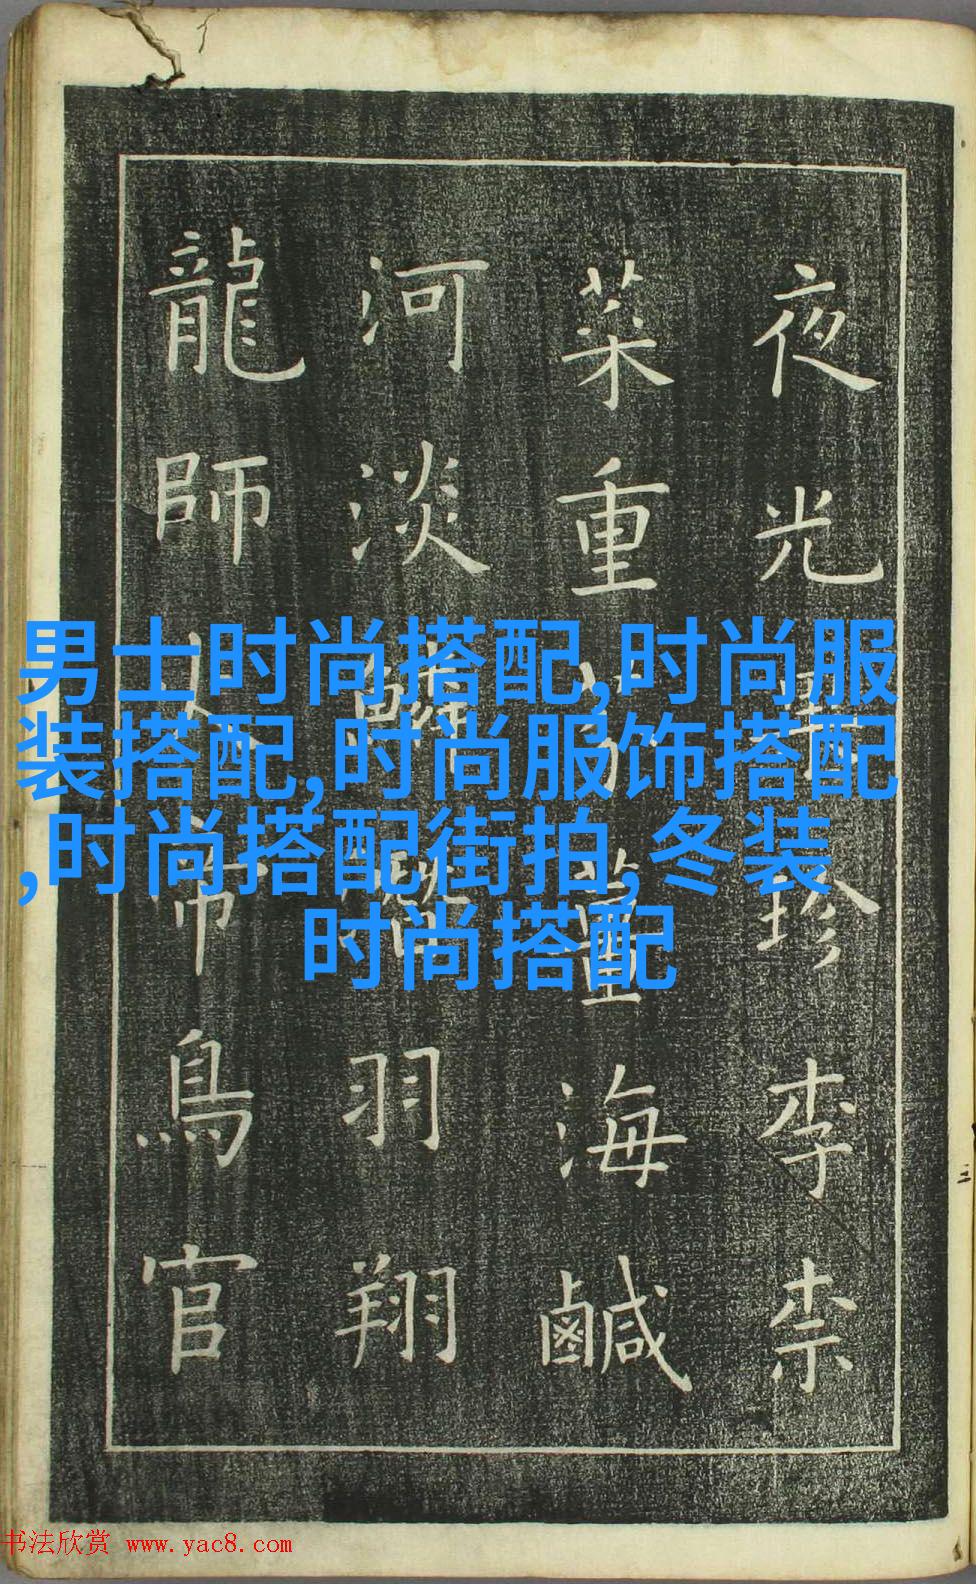 夜光果珍李柰
菜重芥薑海鹹
河淡鱗潛羽翔
龍師火帝鳥官
男士时尚搭配,时尚服
装搭配,时尚服饰搭配
,时尚搭配街拍,冬装
时尚搭配
书法欣赏 www.yac8.com